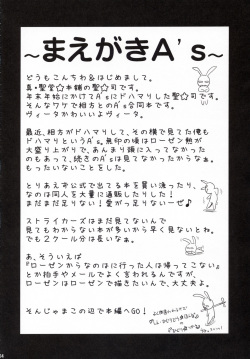 ～まえがきA's～
どうもこんちわ&はじめまして。
真・聖堂☆本舗の聖☆司です。
年末年始にかけてA'sにドハマりした聖☆司です。
そんなワケで相方とのA's合同本です。
ヴィータかわいいよヴィータ。
最近、相方がドハマりして、その横で見てた俺も
ドハマりというA's。無印の頃はローゼン熱が
大盛り上がりで、あんまり頭に入ってなかった
のもあって、続きのA'sは見てなかったからなぁ。
もったいないことをした。
とりあえず公式で出てる本を買い漁ったり、
なのは同人を大量に通販したりした!
まだまだ足りない!愛がっ足りないーぜ♪
ストライカーズはまだ見てないんで
見てもわからない本が多いから早く見ないとね。
でも2クール分は長いなぁ。
あ、そういえば
『ローゼンからなのはに行った人は帰ってこない』
とか拍手やメールでよく言われるんですが、
ローゼンはローゼンで描きたいんで、大丈夫よ。
そんじゃまこの辺で本編へGO!